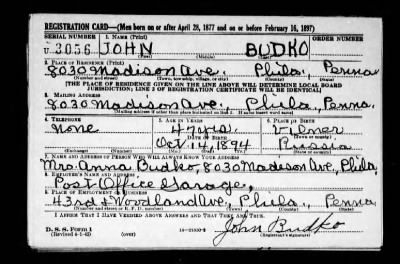 REGISTRATION CARD—(Men born on or after April 28, 1877 and on or before February 16, 1897)
SERIAL NUMBER 1. NAME (Print) ORDER NUMBER
U 3056 JOHN BUDKO
(First) (Middle) (Last)
2. PLACE OF RESIDENCE (Print)
8030 Madison Ave., Phila., Penna.
(Number and street) (Town, township, village, or city) (County) (State)
[THE PLACE OF RESIDENCE GIVEN ON THE LINE ABOVE WILL DETERMINE LOCAL BOARD
JURISDICTION; LINE 2 OF REGISTRATION CERTIFICATE WILL BE IDENTICAL]
3. MAILING ADDRESS
8030 Madison Ave., Phila., Penna.
(Mailing address if other than place indicated on line 2. If same insert word same)
4. TELEPHONE 5. AGE IN YEARS 6. PLACE OF BIRTH
None 47 yrs.
DATE OF BIRTH (Town or county)
Oct 14, 1894 Russia
(Exchange) (Number) (Mo.) (Day) (Yr.) (State or country)
7. NAME AND ADDRESS OF PERSON WHO WILL ALWAYS KNOW YOUR ADDRESS
Mrs. Anna Budko, 8030 Madison Ave., Phila.
8. EMPLOYER'S NAME AND ADDRESS
Post Office Garage,
9. PLACE OF EMPLOYMENT OR BUSINESS
43rd & Woodland Ave., Phila., Penna.
(Number and street or R. F. D. number) (Town) (County) (State)
I AFFIRM THAT I HAVE VERIFIED ABOVE ANSWERS AND THAT THEY ARE TRUE.
D. S. S. Form 1
(Revised 4-1-42) (over) John Budko
(Registrant's signature)